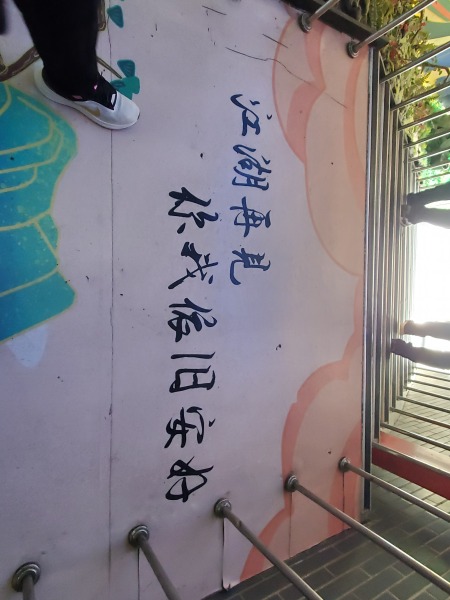 江湖再見
你我依旧安好